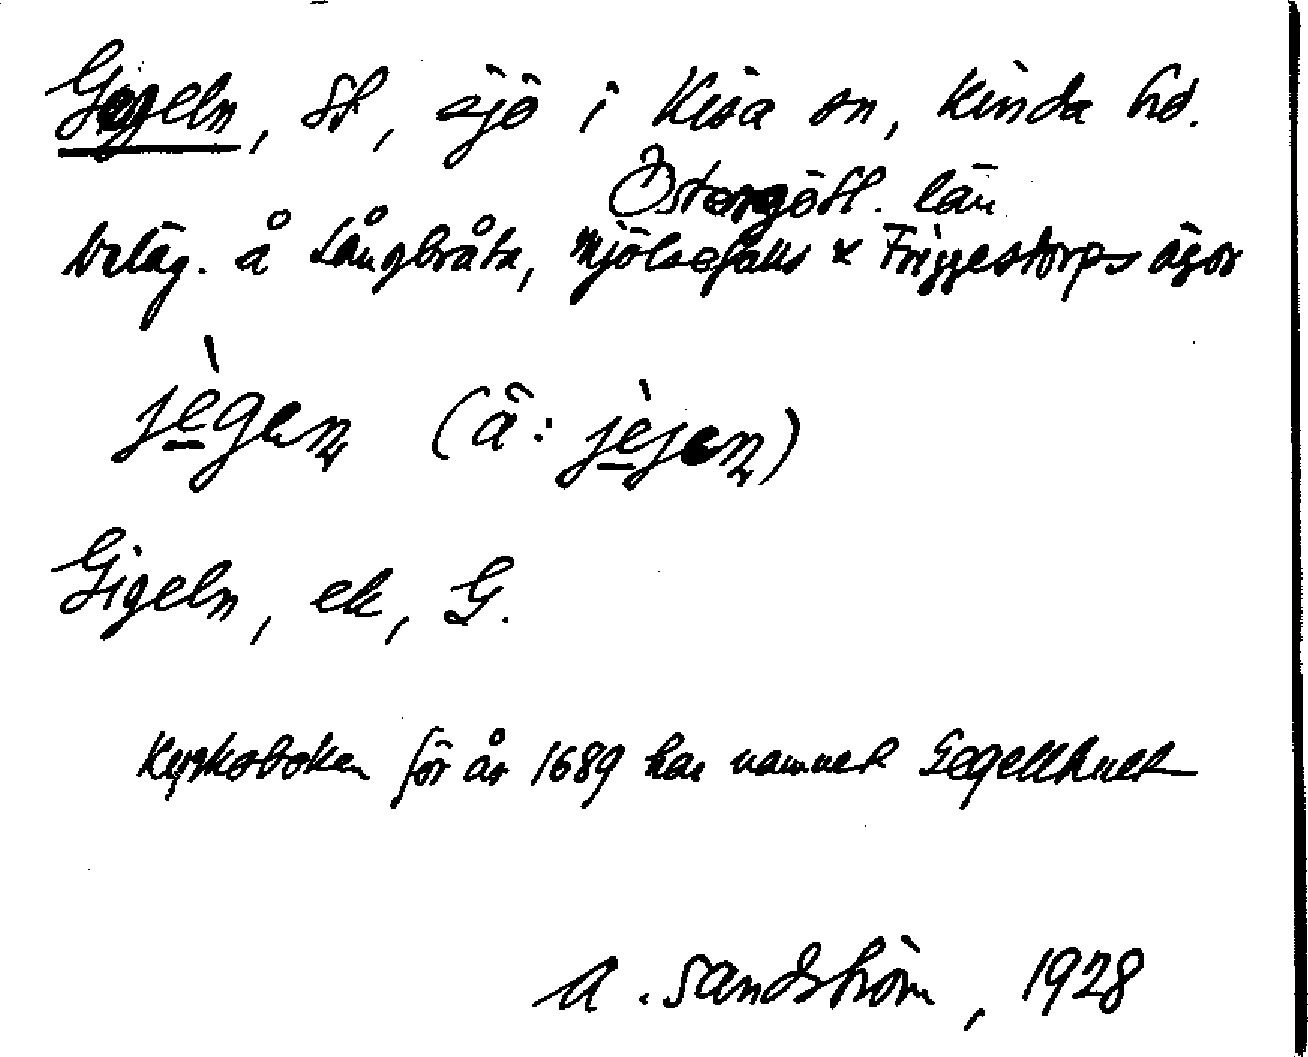 Gigeln, St, sjö i Kisa sn, Kinda hd.
Östergötl. län
beläg. å Långbråta, Mjölsefalls & Friggestorps ägor
jègen (ä: jèjen)
Gigeln, ek, G.
Kyrkoboken för år 1689 har namnet Gegellhult
A. Sandström, 1928